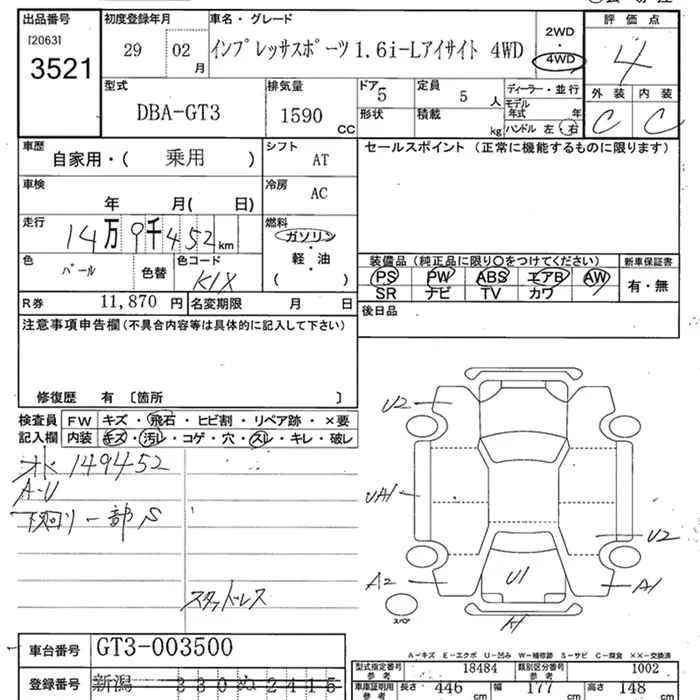 出品番号 初度登録年月 車名・グレード 評価点
[2063] 3521 29 02月 インプレッサスポーツ 1.6i-Lアイサイト 4WD 2WD・4WD 4
型式 排気量 ドア 定員 ディーラー・並行 外装 内装
DBA-GT3 1590CC 5 5人 モデル年式 年 C C
形状 積載 kg ハンドル 左・右
車歴 シフト セールスポイント(正常に機能するものに限ります)
自家用・( 乗用 ) AT
車検 年 月( 日) 冷房 AC
走行 14万9千452km 燃料 ガソリン・軽油( )
色 パール 色替 色コード K1X
装備品(純正品に限り○をつけてください) 新車保証書
PS PW ABS エアB AW 有・無
SR ナビ TV カワ
R券 11,870円 名変期限 月 日 後日品
注意事項申告欄(不具合内容等は具体的に記入して下さい)
修復歴 有 〔箇所 〕
検査員記入欄
FW キズ・飛石・ヒビ割・リペア跡・×要
内装 キズ・汚レ・コゲ・穴・スレ・キレ・破レ
オド 149452
A-U
下回り一部S
スタッドレス
U2
UA1
U2
A2
U1
A1
スペア
X1
A-キズ E-エクボ U-凹み W-補修跡 S-サビ C-腐食 ××-交換済
車台番号 GT3-003500
型式指定番号 参考 18484 類別区分番号 参考 1002
登録番号 新潟 330 ぬ 2415
車庫証明用 参考 長さ 446cm 幅 177cm 高さ 148cm